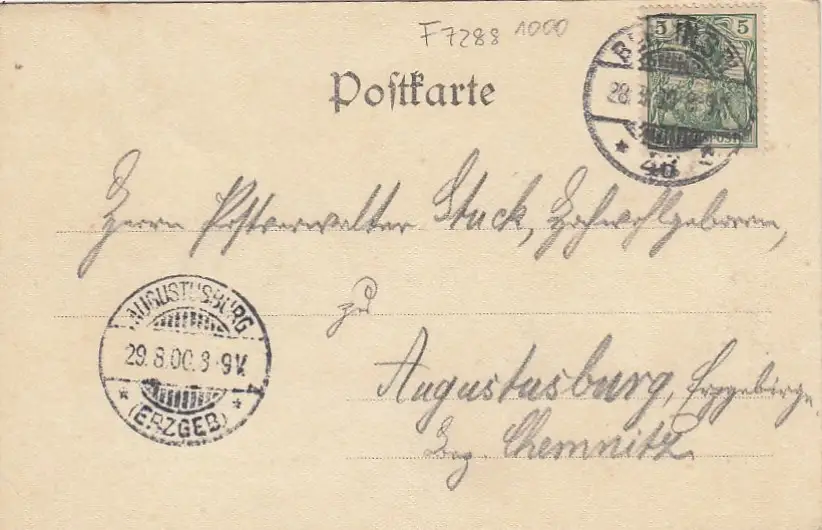 F7288 1000
5 5
Postkarte
28.8.00.8-9V.
Herrn Postverwalter Stack, Hochwohlgeboren,
zu
AUGUSTUSBURG
29.8.00.8-9V.
* *
(ERZGEB)
Augustusburg, Erzgebirge
Bez. Chemnitz